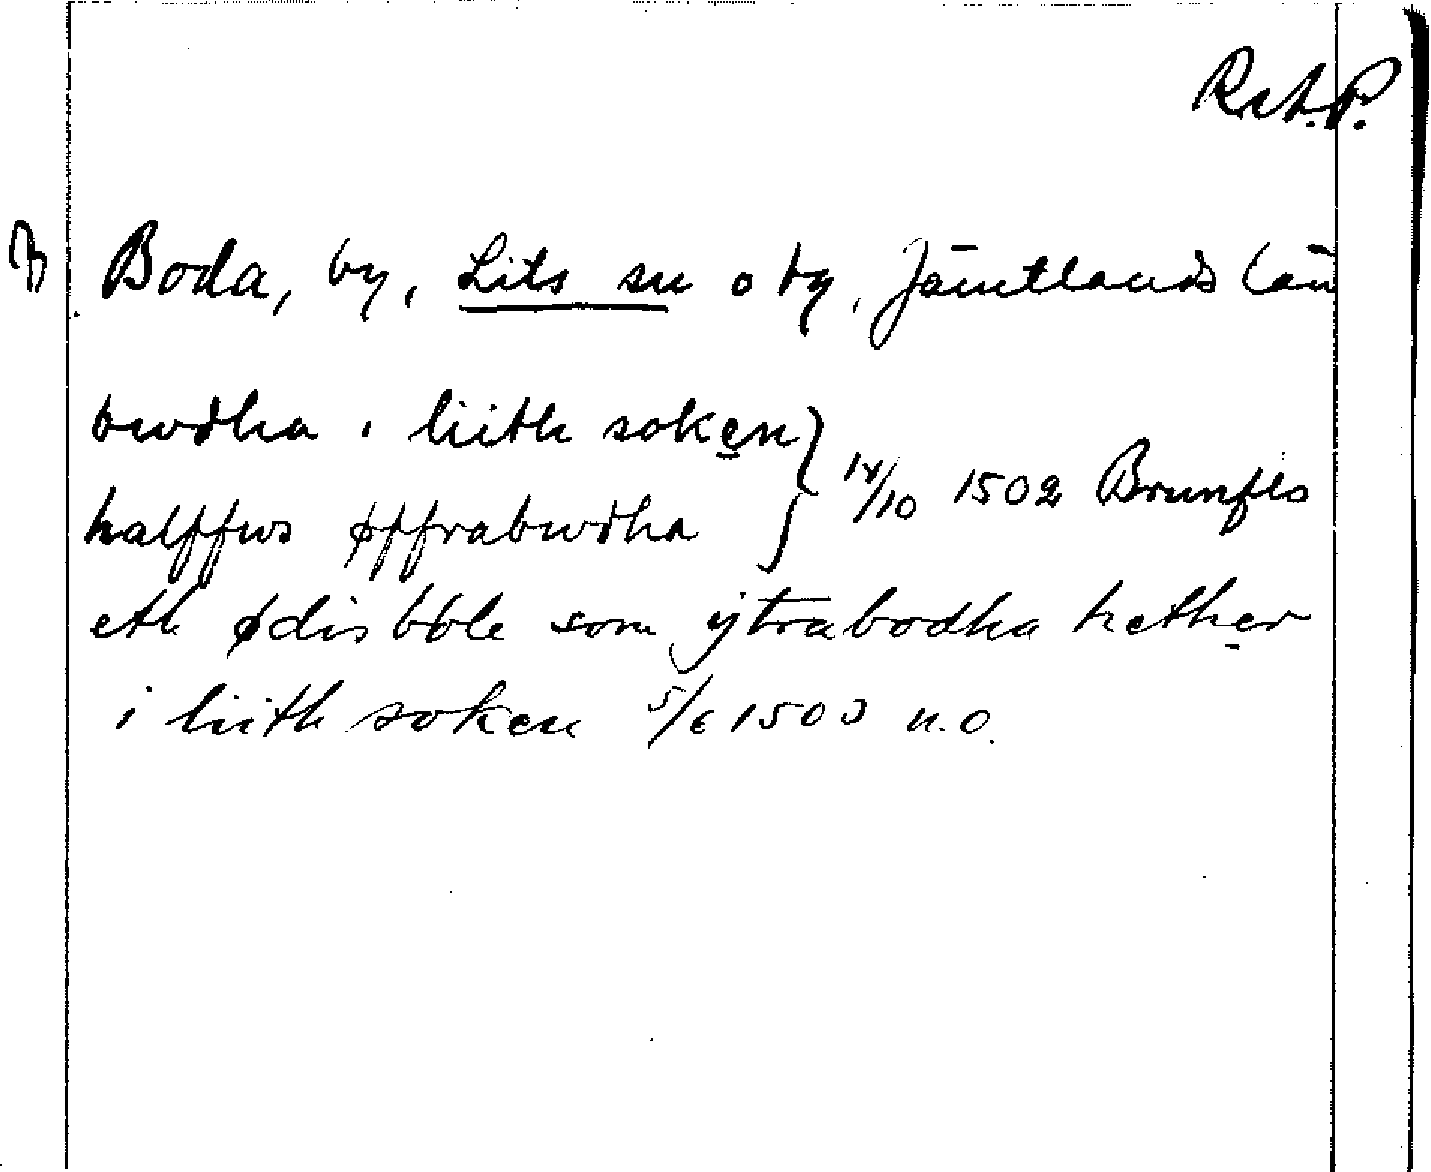 RAP.
B Boda, by, Lits sn o tg, Jämtlands län
bwdha i liith soken
halffws øffrabwdha } 14/10 1502 Brunflo
eth ødis bøle som ÿtrabodha hether
i liith soken 5/6 1503 n.o.